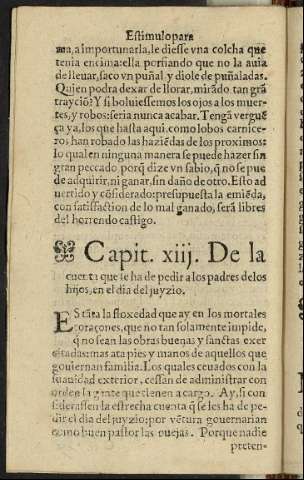 Estimulo para
ma, a importunarla, le diesse vna colcha que
tenia encima: ella porfiando que no la auia
de lleuar, saco vn puñal y diole de puñaladas.
Quien podra dexar de llorar, mirãdo tan grã
trayciõ? Y si boluiessemos los ojos a los muer-
tes, y robos: seria nunca acabar. Tengã vergue
ça ya, los que hasta aqui como lobos carnice-
ros han robado las haziẽdas de los proximos:
lo qual en ninguna manera se puede hazer sin
gran peccado, porq̃ dize vn sabio, q̃ no se pue
de adquirir, ni ganar, sin daño de otro. Esto ad
uertido y cõsiderado: presupuesta la emiẽda,
con satisfactiõn de lo mal ganado, serã libres
del horrendo castigo.
Capit. xiij. De la
cuenta que se ha de pedir a los padres de los
hijos, en el dia del juyzio.
ES tãta la floxedad que ay en los mortales
coraçones, que no tan solamente impide,
q̃ no sean las obras buenas y sanctas exer
citadas: mas ata pies y manos de aquellos que
gouiernan familia. Los quales ceuados con la
suauidad exterior, cessan de administrar con
orden la gente que tienen a cargo. Ay, si con
siderassen la estrecha cuenta q̃ se les ha de pe-
dir el dia del juyzio: por vẽtura gouernarian
como buen pastor las ouejas. Porque nadie
preten-